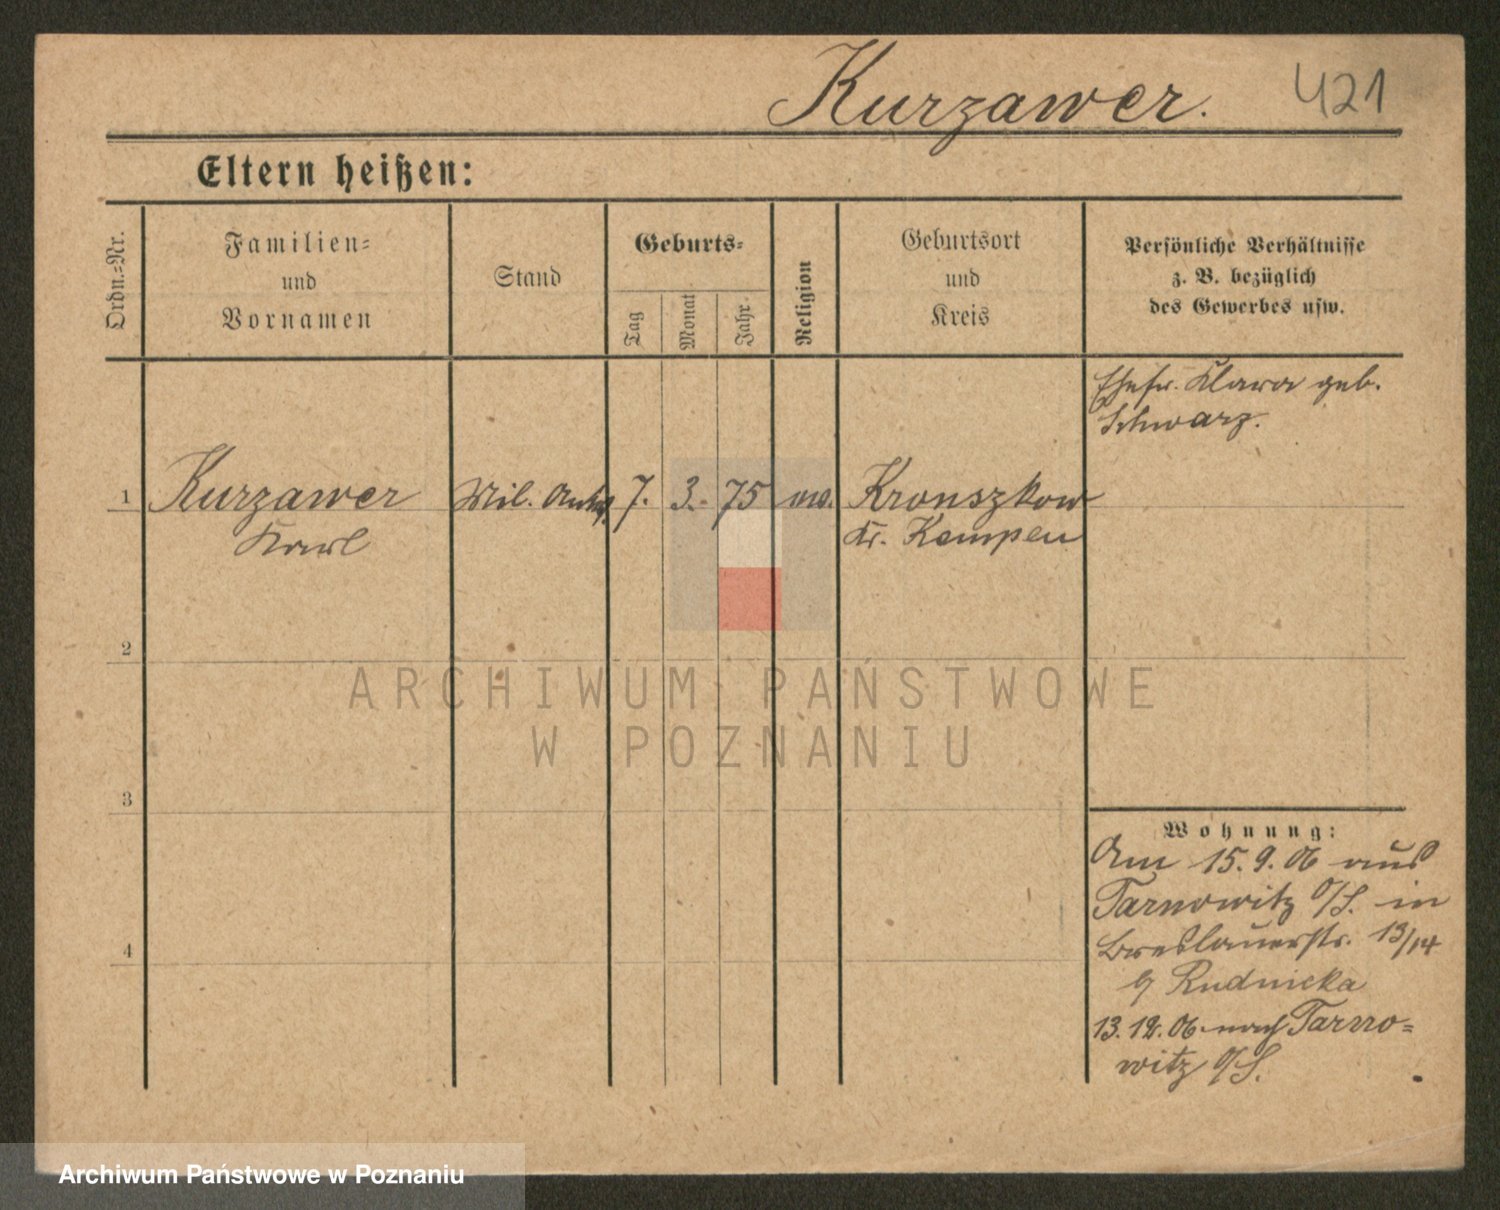 Kurzawer.
421
Eltern heißen:
Ordn.=Nr.
Familien=
und
Vornamen
Stand
Geburts=
Tag
Monat
Jahr
Religion
Geburtsort
und
Kreis
Persönliche Verhältnisse
z. B. bezüglich
des Gewerbes usw.
Ehefr. Klara geb.
Schwarz.
1 Kurzawer Mil. 7. 3. 75 Kronszkow
Karl Kr. Kempen
2
3
4
Wohnung:
Am 15.9.06 aus
Tarnowitz O/S. in
Breslauerstr. 13/14
Rudnicka
13.12.06 nach Tarno=
witz O/S.
ARCHIWUM PAŃSTWOWE
W POZNANIU
Archiwum Państwowe w Poznaniu